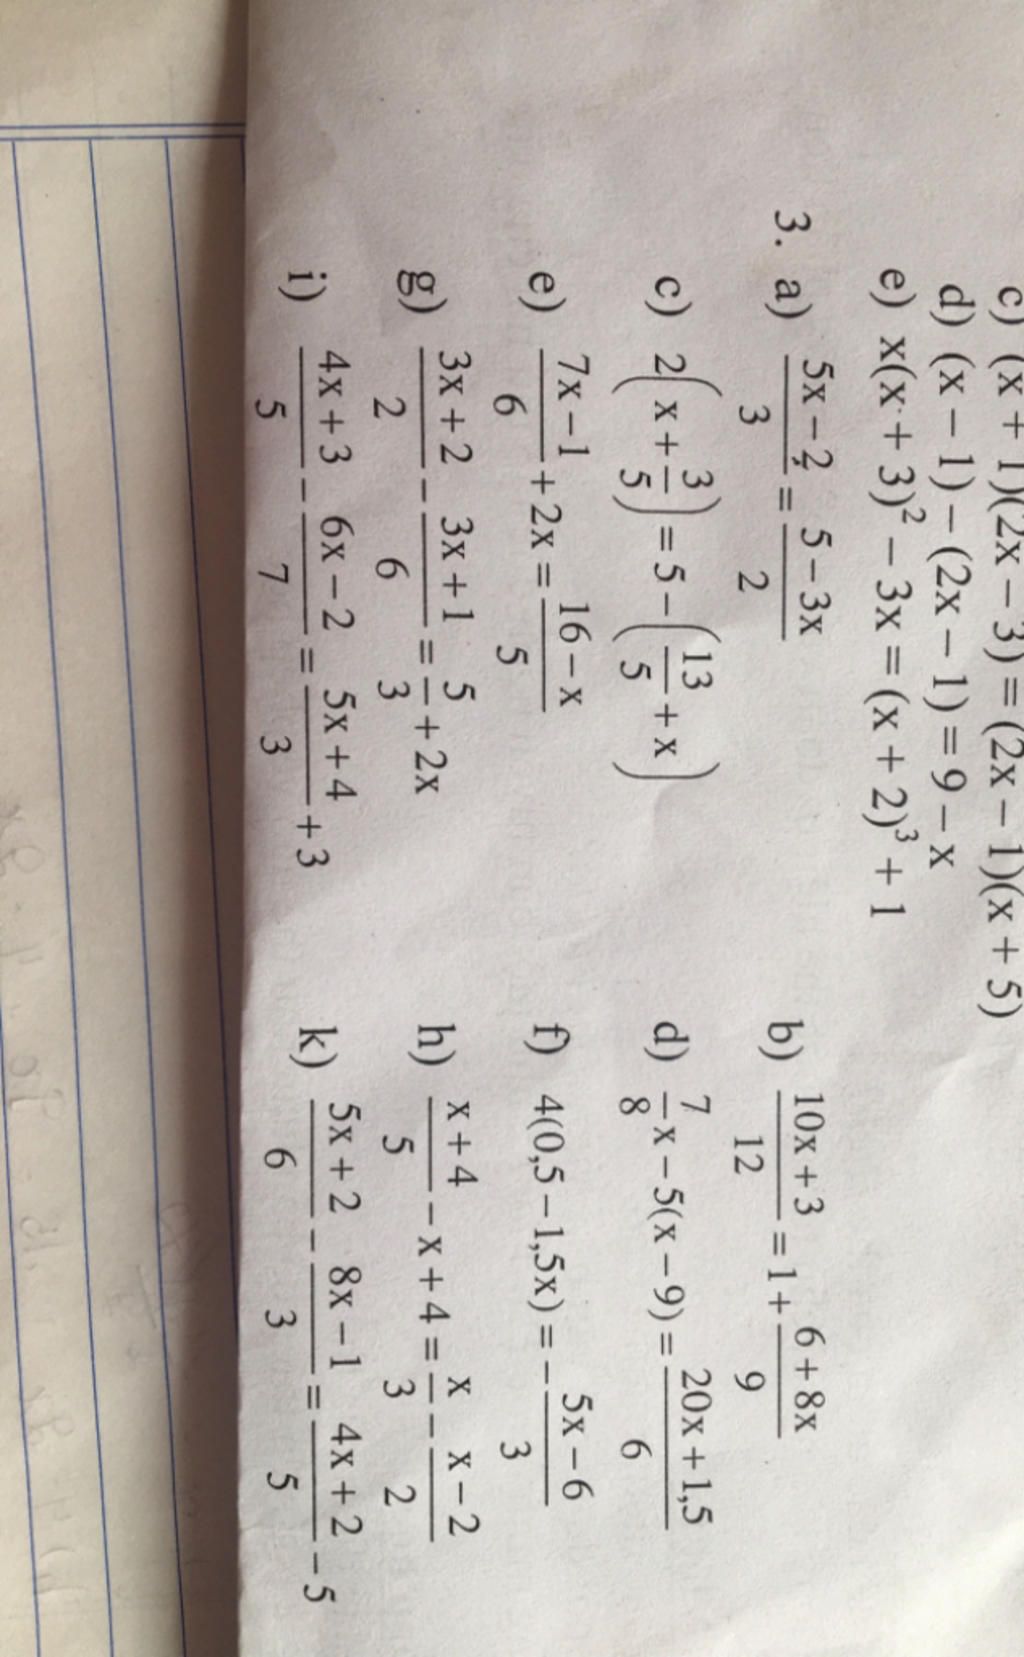 c) (x + 1)(2x – 3) = (2x – 1)(x + 5)
d) (x – 1) – (2x – 1) = 9 – x
e) x(x + 3)² – 3x = (x + 2)³ + 1
3. a) (5x – 2)/3 = (5 – 3x)/2 b) (10x + 3)/12 = 1 + (6 + 8x)/9
c) 2(x + 3/5) = 5 – (13/5 + x) d) 7/8 x – 5(x – 9) = (20x + 1,5)/6
e) (7x – 1)/6 + 2x = (16 – x)/5 f) 4(0,5 – 1,5x) = – (5x – 6)/3
g) (3x + 2)/2 – (3x + 1)/6 = 5/3 + 2x h) (x + 4)/5 – x + 4 = x/3 – (x – 2)/2
i) (4x + 3)/5 – (6x – 2)/7 = (5x + 4)/3 + 3 k) (5x + 2)/6 – (8x – 1)/3 = (4x + 2)/5 – 5